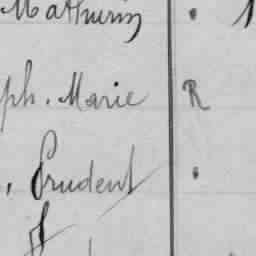 Mathurin . 1
ph. Marie R
, Prudent .